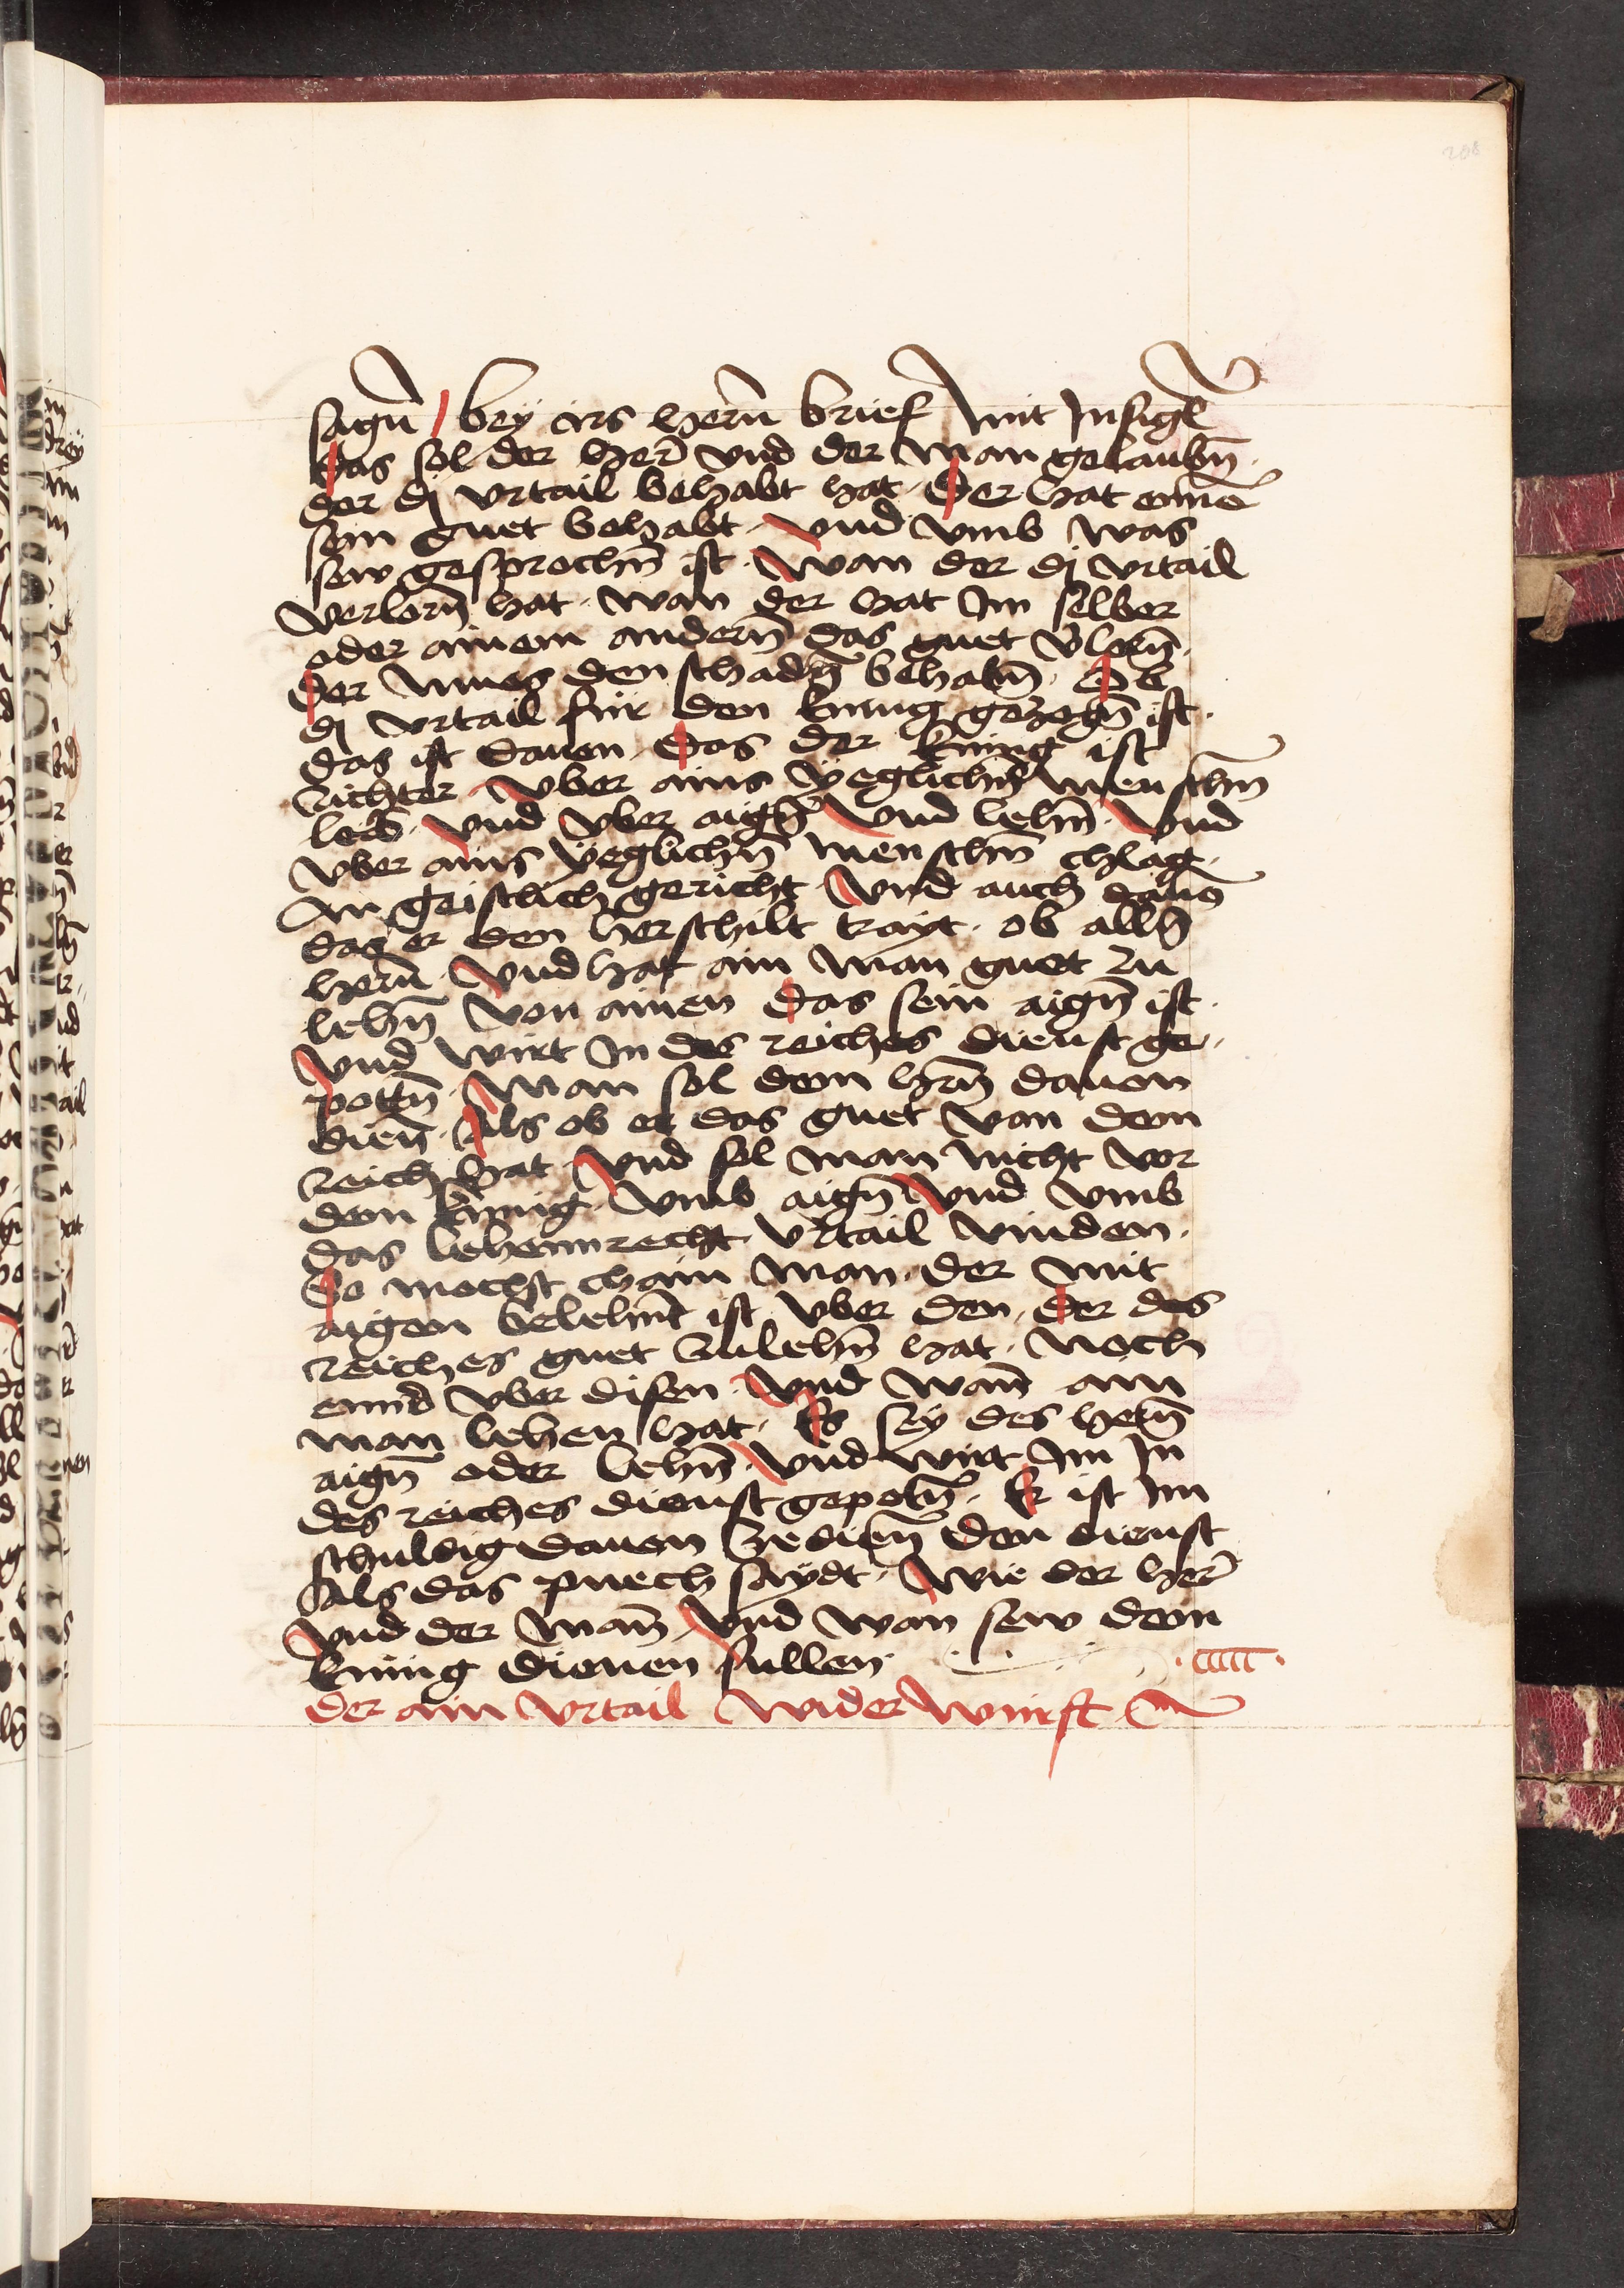 208
sagn̄ bey irs hern̄ brief mit Insigl
das sol der her̄ vnd der man gelaubn̄ ·
der dj vrtail behabt hat · Der hat enn̄e
sein guet behabt · vnd vmb was
sew gesprochn̄ ist · wan der dj vrtail
verlorn̄ hat · wan der hat Im selber
oder ainem andern̄ das guet v̄lorn̄ ·
der mues den schadn̄ behabn̄ · Ob
dj vrtail für den kunig gezogn̄ ist ·
das ist dauon · das der kunig ist
richter vber ains yeglichn̄ menschn̄
leib · vnd vber aign̄ vnd lehn̄ · vnd
vber ains yeglichn̄ menschn̄ chlag ·
an geistlich gericht · vnd auch dauō
das er den herschilt trayt · ob alln̄
hern̄ · vnd hat ain man guet zu
lehn̄ von ainen das sein aign̄ ist ·
vnd wirt In des reiches dienst ge-
pottn̄ · man sol dem hrn̄ dauon
dien̄ · Als ob er das guet von dem
reich hat · vnd sol man nicht vor
dem kunig · vmb aign̄ vnd vmb
das lehennrecht vrtail vinden ·
So mochst chain man · der mit
aigen belehnt ist vber den · der des
reiches guet zulehn̄ hat · noch
ennd vber disen · vnd wan̄ ain
man lehen hat · Es sey des hern̄
aign̄ oder lehn̄ · vnd wirt Im In
des reiches dienst gepotn̄ · Er ist Im
schuldig dauon ze dien̄ den dienst
Als das puech saydt · wie der her̄
vnd der man̄ · vnd wan sew dem
kunig dienen sullen ·
der ain vrtail widerwurft